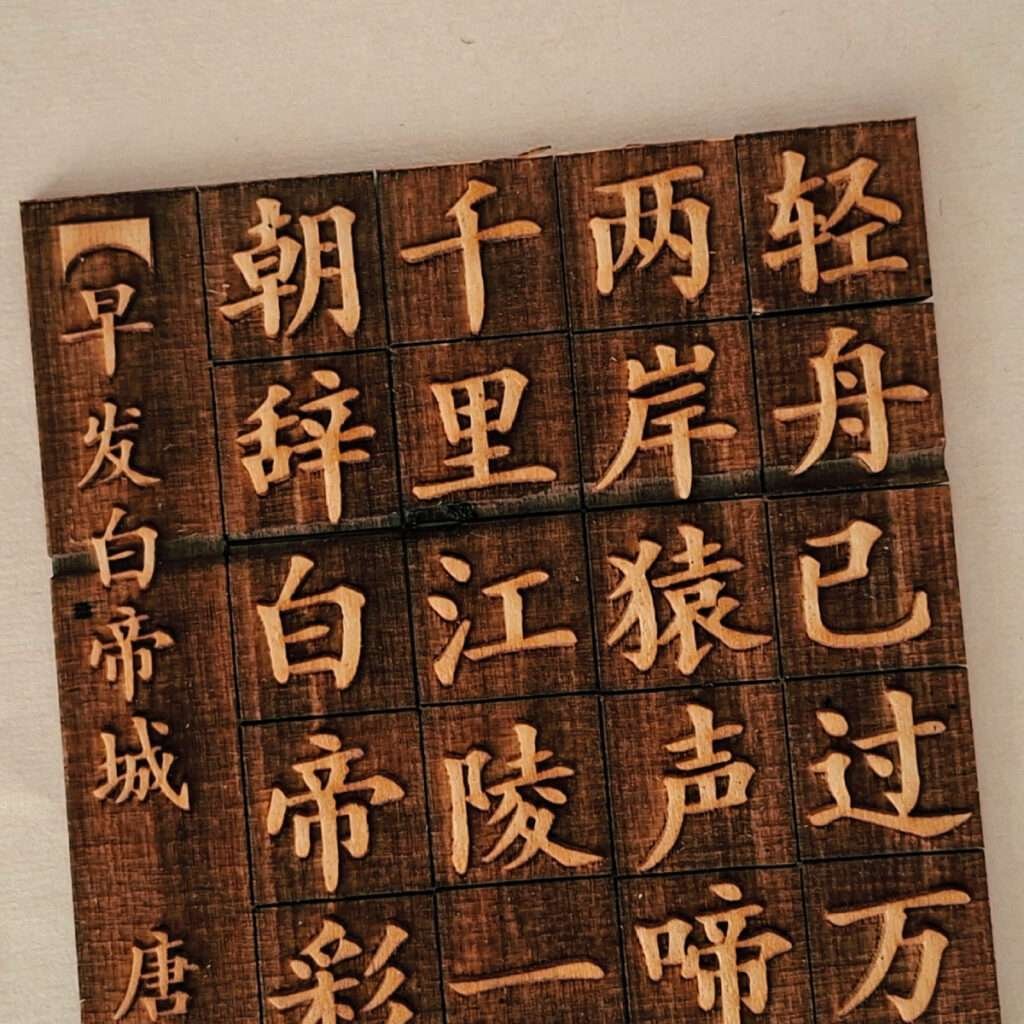 【早发白帝城 唐
朝辞白帝彩
千里江陵一
两岸猿声啼
轻舟已过万